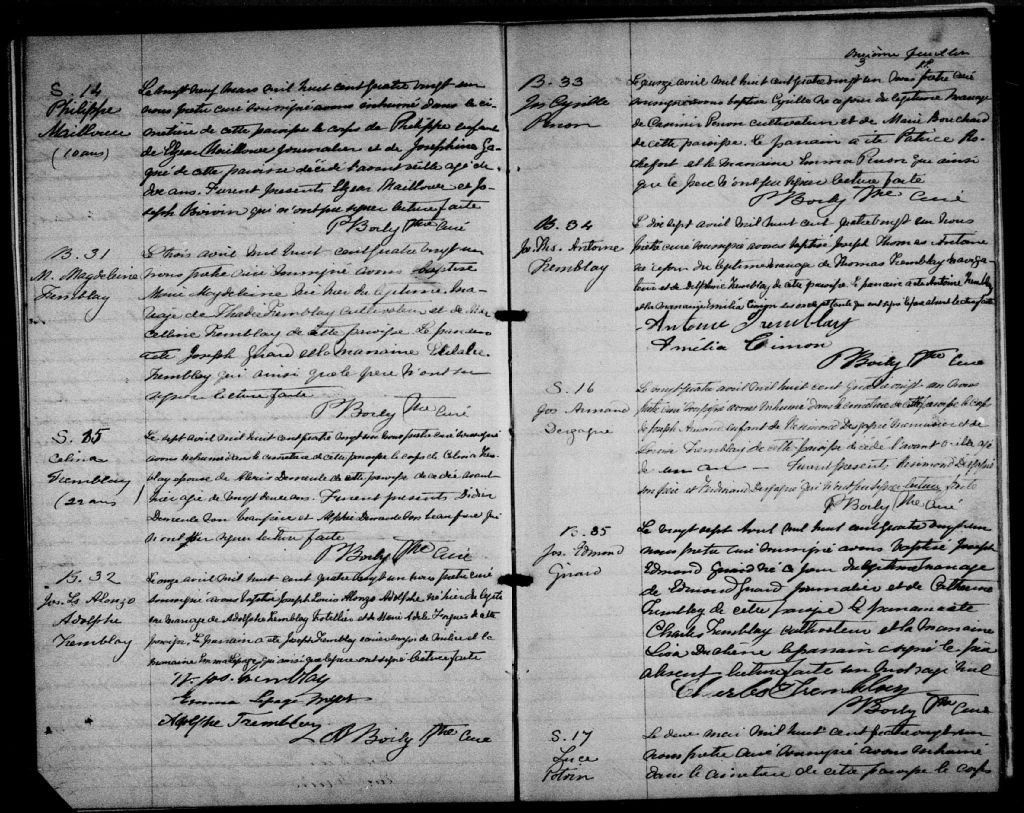 S. 14
Philippe
Mailloux
(10 ans)
Le vingt neuf mars mil huit cent quatre vingt un
nous prêtre curé soussigné avons inhumé dans le ci-
metière de cette paroisse le corps de Philippe enfant
de Elzear Mailloux journalier et de Josephine Ga-
gné de cette paroisse décédé l'avant veille agé de
dix ans. Furent presents Elzear Mailloux et Jo-
seph Boivin qui n'ont pu signer lecture faite
P Boily Ptre Curé
B. 31
M. Magdeleine
Tremblay
Le trois avril mil huit cent quatre vingt un
nous prêtre curé soussigné avons baptisé
Marie Magdeleine née hier du légitime ma-
riage de Tremblay cultivateur et de Mar-
celline Tremblay de cette paroisse Le parrain
a été Joseph Girard et la marraine
Tremblay qui ainsi que le père n'ont su
signer lecture faite
P Boily Ptre Curé
S. 15
Celina
Tremblay
(22 ans)
Le sept avril mil huit cent quatre vingt un nous prêtre curé soussigné
avons inhumé dans le cimetière de cette paroisse le corps de Celina Trem-
blay épouse de Alexis Demeule de cette paroisse décédée avant
hier agée de vingt deux ans. Furent presents Didier
Demeule son beaufrère et Alphée Demeule son beau frère qui
n'ont pu signer lecture faite
P Boily Ptre Curé
B. 32
Jos. Ls Alonzo
Adolphe
Tremblay
Le onze avril mil huit cent quatre vingt un nous prêtre curé
soussigné avons baptisé Joseph Louis Alonzo Adolphe né hier du légiti-
me mariage de Adolphe Tremblay hotellier et de Marie Adele de cette
paroisse. Le parrain a été Joseph Tremblay et la
marraine Emma Lepage qui ainsi que le père ont signé lecture faite
Jos. Tremblay
Emma Lepage
Adolphe Tremblay
P Boily Ptre Curé
onzième feuillet
B. 33
Jos Cyrille
Simon
Le onze avril mil huit cent quatre vingt un nous prêtre curé
soussigné avons baptisé Cyrille né ce jour du légitime mariage
de Casimir cultivateur et de Marie Bouchard
de cette paroisse. Le parrain a été Patrice Ro-
chefort et la marraine Emma qui ainsi
que le père n'ont pu signer lecture faite
P Boily Ptre Curé
B. 34
Jos. Ths. Antoine
Tremblay
Le dix sept avril mil huit cent quatre vingt un nous
prêtre curé soussigné avons baptisé Joseph Thomas Antoine
né ce jour du légitime mariage de Thomas Tremblay
et de Delphine Tremblay de cette paroisse Le parrain a été Antoine Tremblay
et la marraine Amélia Simon lecture faite
Antoine Tremblay
Amélia Cimon
P Boily Ptre Curé
S. 16
Jos Armand
Desgagné
Le vingt quatre avril mil huit cent quatre vingt un nous
prêtre curé soussigné avons inhumé dans le cimetière de cette paroisse le corps
de Joseph Armand enfant de Desgagné et de
Louise Tremblay de cette paroisse décédé l'avant veille agé
de un an — Furent present Desgagné
son père et Desgagné qui n'ont pu signer lecture faite
P Boily Ptre Curé
B. 35
Jos. Edmond
Girard
Le vingt sept Avril mil huit cent quatre vingt un
nous prêtre curé soussigné avons baptisé Joseph
Edmond Girard né ce jour du légitime mariage
de Edmond Girard journalier et de Catherine
Tremblay de cette paroisse Le parrain a été
Charles Tremblay cultivateur et la marraine
Lisa Duchène le parrain a signé le père
absent lecture faite un mot rayé nul
Charles Tremblay
P Boily Ptre Curé
S. 17
Luce
Potvin
Le deux mai mil huit cent quatre vingt un
nous prêtre curé soussigné avons inhumé
dans le cimetière de cette paroisse le corps